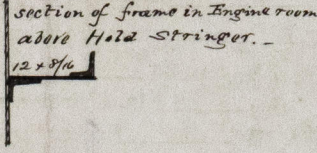 section of frame in Engine room
above Hold Stringer. _
12 x 8/16